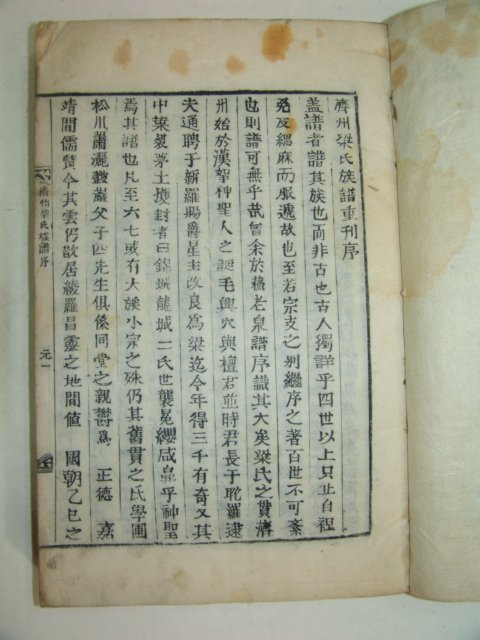 濟州梁氏族譜重刊序
盖譜者譜其族也而非古也古人獨詳乎四世以上只止自裎
免反緦麻而服遞故也至若宗支之别繼序之著百世不可紊
也則譜可無乎哉曾余於 老泉譜序識其大矣梁氏之貫濟
州始於漢挐神聖人之 毛興穴與檀君並時君長于耽羅逮
夫通聘于新羅賜爵星主改良爲梁迄今年得三千有奇又其
中葉 茅土 封者曰錦城龍城二氏世襲冕纓咸皇乎神聖
焉其譜也凡至六七或有大族小宗之殊仍其舊貫之氏學圃
松川瀟灑 父子四先生俱係同堂之親鬱爲 正德 嘉
靖間儒賢今其雲仍散居綾羅昌靈之地間値 國朝乙巳之
濟州梁氏族譜序
元一